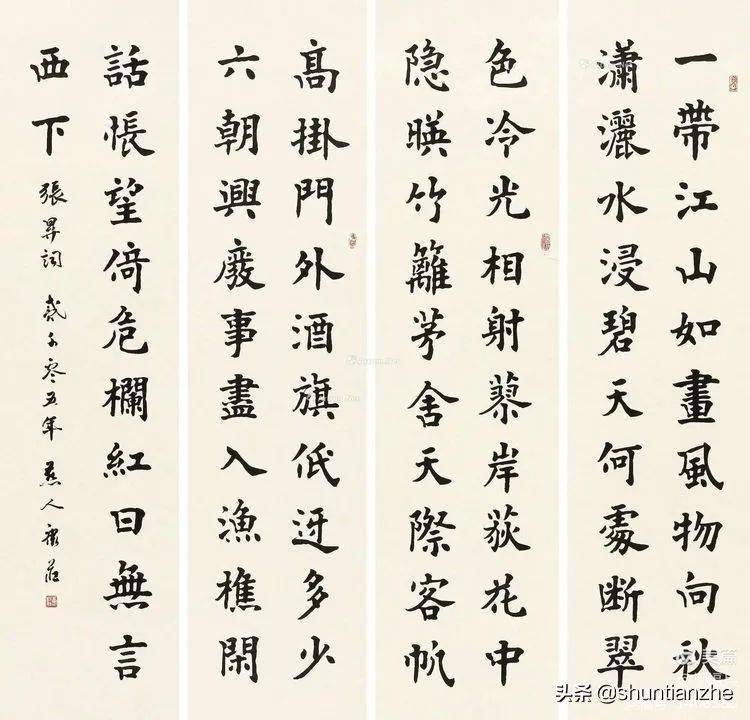 一帶江山如畫風物向秋
瀟灑水浸碧天何處断翠
色冷光相射蓼岸荻花中
隐暎竹籬茅舍天際客帆
髙掛門外酒旗低迓多少
六朝興廢事盡入漁樵閑
話悵望倚危欄紅日無言
西下
張昇詞 贰千零五年 燕人康莊
美篇
头条 @shuntianzhe